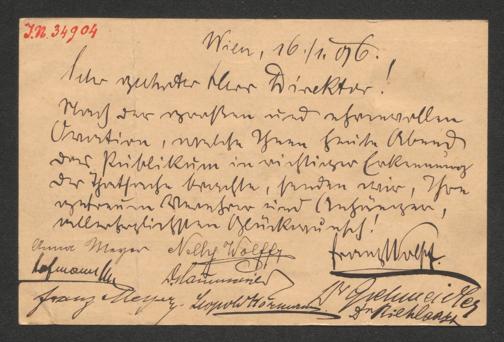 J.N. 34904
Wien, 16./1. 96.
Sehr geehrter Herr Direktor!
Nach der großen und ehrenvollen
Ovation, welche Ihnen heute Abend
das Publikum in richtiger Erkennung
der Thatsache brachte, senden wir, Ihre
getreuen Verehrer und Anhänger,
allerherzlichsten Glückwunsch!
Anna Meyer Nelly Wolff Franz Wolff
Hofmann
Franz Meyer. Leopold Hörmann Dr
Dr